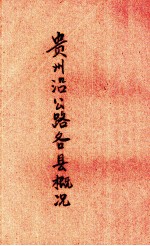 贵州沿公路各县概况